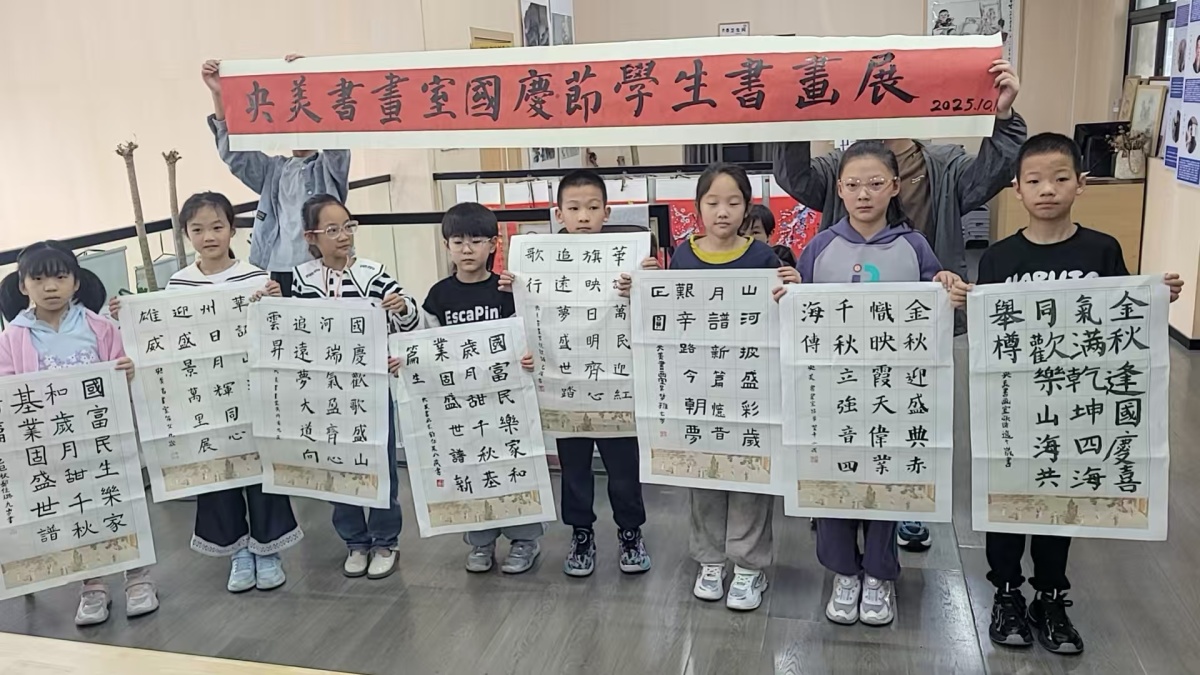 央美書畫室國慶節學生書畫展
2025.10.1
國富民生樂家
和歲月甜千秋
基業固盛世譜
篇
華
州日輝同心
迎盛景萬里展
雄威
國慶歡歌盛山
河瑞氣盈齊心
追遠夢大道向
雲昇
EscaPin
國富民樂家和
歲月甜千秋基
業固盛世譜新
篇生
華誕萬民迎紅
旗映日明齊心
追遠夢盛世踏
歌行
山河披盛彩歲
月譜新篇憶昔
艱辛路今朝夢
正圓
金秋迎盛典赤
幟映霞天偉業
千秋立強音四
海傳
NARUTO
金秋逢國慶喜
氣滿乾坤四海
同歡樂山海共
舉樽